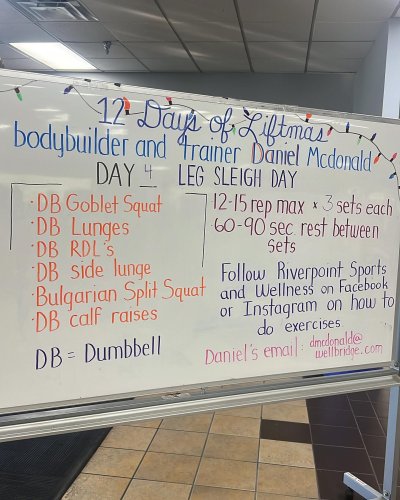 12 Days of Liftmas
bodybuilder and Trainer Daniel Mcdonald
DAY 4 LEG SLEIGH DAY
• DB Goblet Squat
• DB Lunges
• DB RDL's
• DB side lunge
• Bulgarian Split Squat
• DB calf raises
DB = Dumbbell
12-15 rep max x 3 sets each
60-90 sec rest between
sets
Follow Riverpoint Sports
and Wellness on Facebook
or Instagram on how to
do exercises
Daniel's email: dmcdonald@
wellbridge.com